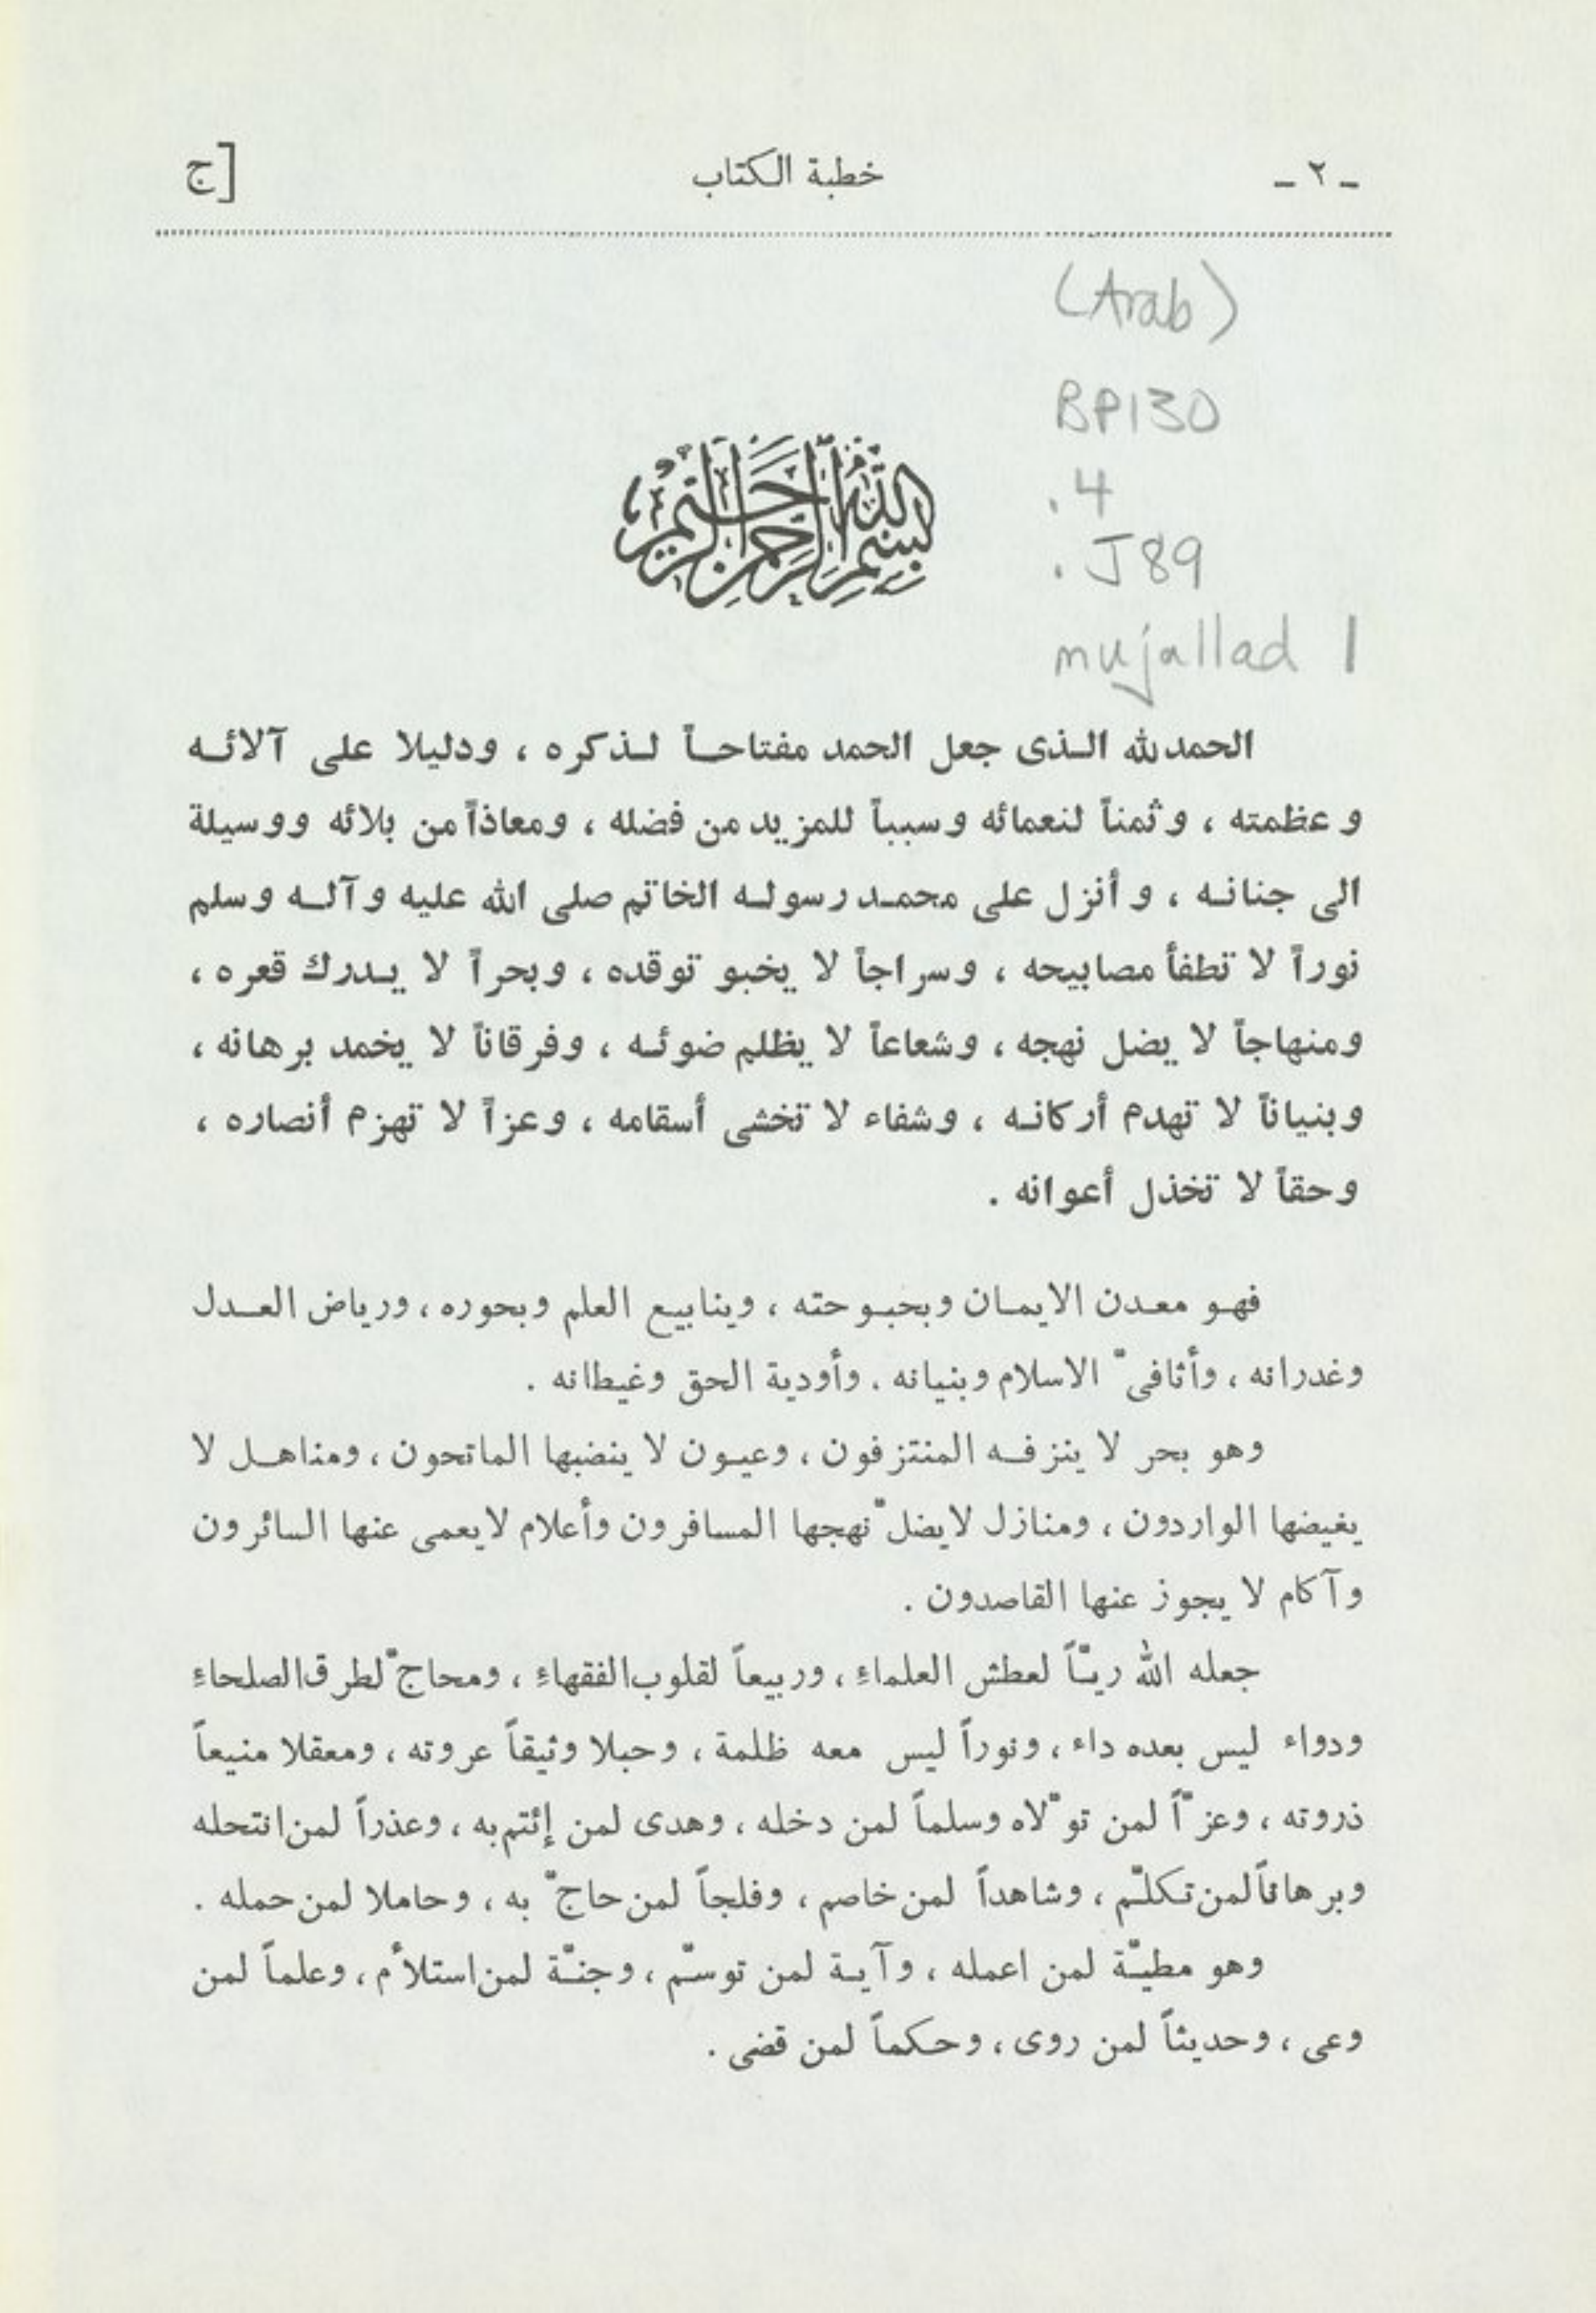 - ٢ - خطبة الكتاب [ج
(Arab)
BP130
.4
.J89
mujallad 1
بسم الله الرحمن الرحيم
الحمدلله الـذى جعل الحمد مفتاحـاً لـذكره ، ودليلا على آلائـه
وعظمته ، وثمناً لنعمائه وسبباً للمزيد من فضله ، ومعاذاً من بلائه ووسيلة
الى جنانـه ، وأنزل على محمـد رسولـه الخاتم صلى الله عليه وآلـه وسلم
نوراً لا تطفأ مصابيحه ، وسراجاً لا يخبو توقده ، وبحراً لا يـدرك قعره ،
ومنهاجاً لا يضل نهجه ، وشعاعاً لا يظلم ضوئـه ، وفرقاناً لا يخمد برهانه ،
وبنياناً لا تهدم أركانـه ، وشفاء لا تخشى أسقامه ، وعزاً لا تهزم أنصاره ،
وحقاً لا تخذل أعوانه .
فهـو معـدن الايمـان وبحبـوحته ، وينابيع العلم وبحوره ، ورياض العـدل
وغدرانه ، وأثافىّ الاسلام وبنيانه . وأودية الحق وغيطانه .
وهو بحر لا ينزفـه المنتزفون ، وعيـون لا ينضبها الماتحون ، ومناهـل لا
يغيضها الواردون ، ومنازل لايضلّ نهجها المسافرون وأعلام لايعمى عنها السائرون
وآكام لا يجوز عنها القاصدون .
جعله الله ريـّاً لعطش العلماءِ ، وربيعاً لقلوب الفقهاءِ ، ومحاجّ لطرق الصلحاءِ
ودواء ليس بعده داء ، ونوراً ليس معه ظلمة ، وحبلا وثيقاً عروته ، ومعقلا منيعاً
ذروته ، وعزّاً لمن تولّاه وسلماً لمن دخله ، وهدى لمن إئتم به ، وعذراً لمن انتحله
وبرهاناً لمن تكلّم ، وشاهداً لمن خاصم ، وفلجاً لمن حاجّ به ، وحاملا لمن حمله .
وهو مطيـّة لمن اعمله ، وآيـة لمن توسّم ، وجنـّة لمن استلأم ، وعلماً لمن
وعى ، وحديثاً لمن روى ، وحكماً لمن قضى .